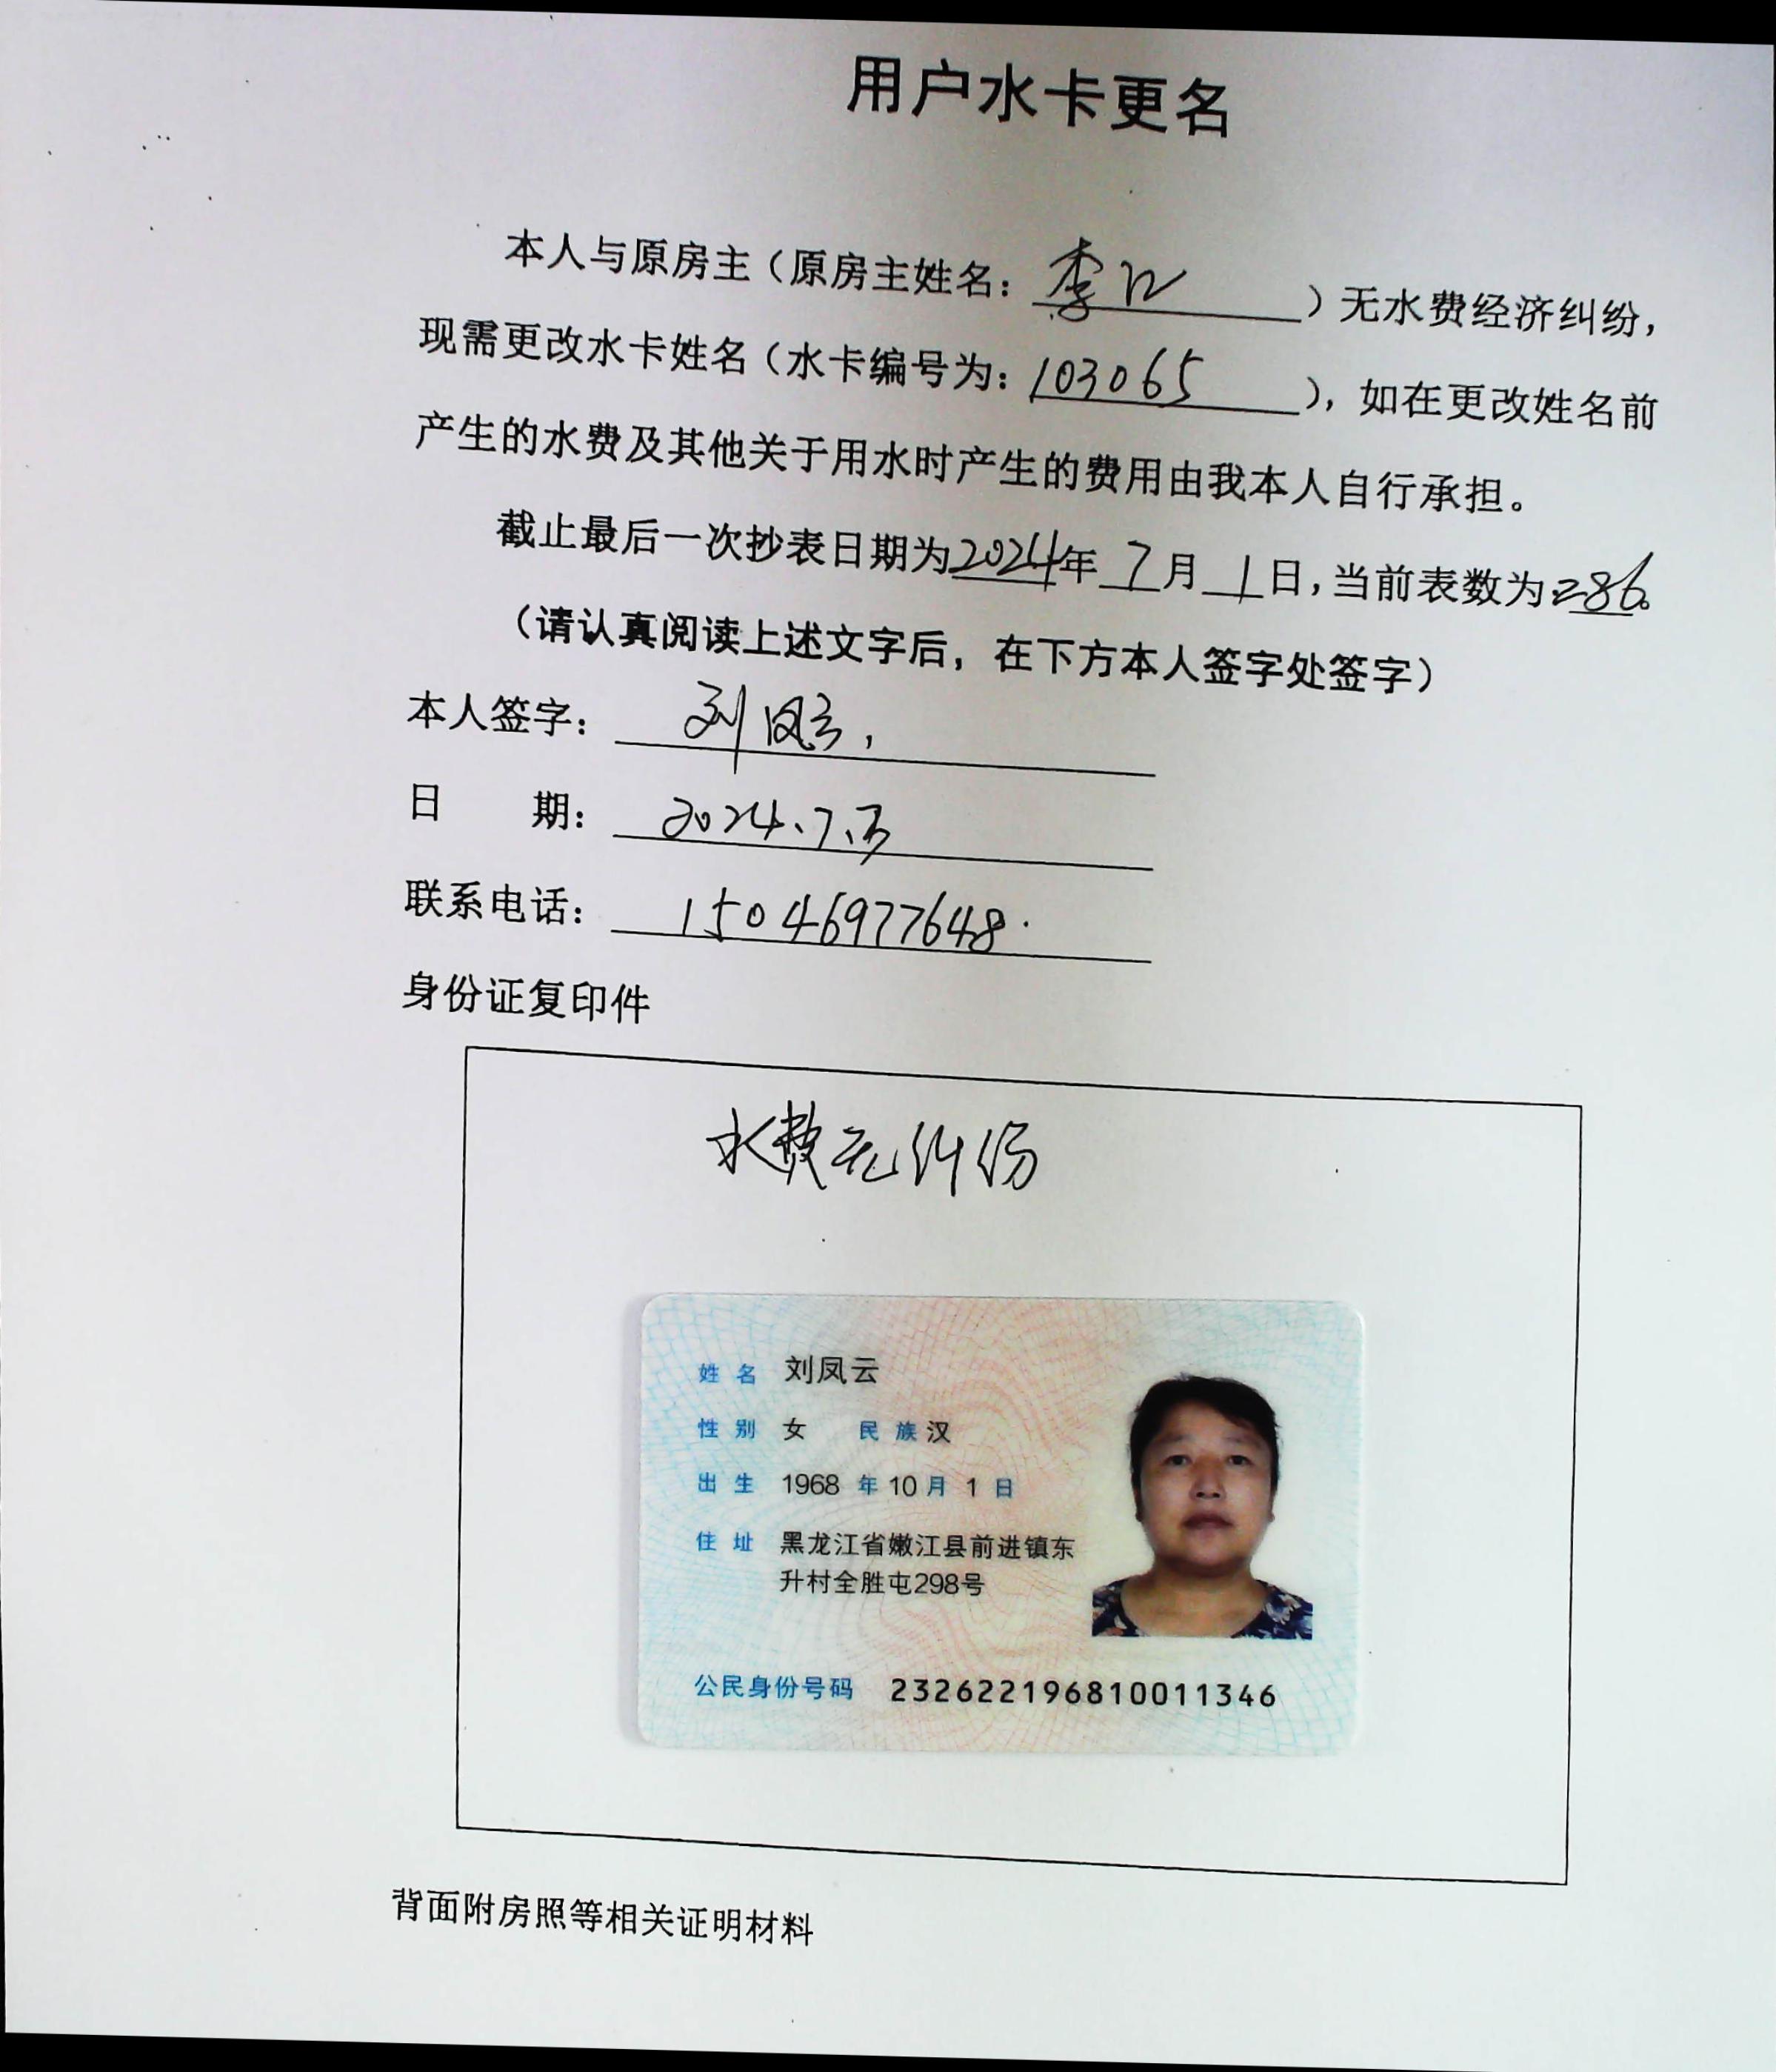 用户水卡更名
本人与原房主（原房主姓名：李江）无水费经济纠纷，
现需更改水卡姓名（水卡编号为：103065），如在更改姓名前
产生的水费及其他关于用水时产生的费用由我本人自行承担。
截止最后一次抄表日期为2024年7月1日，当前表数为286。
（请认真阅读上述文字后，在下方本人签字处签字）
本人签字：刘凤云，
日 期：2024、7、3
联系电话：15046977648.
身份证复印件
水费无纠纷
姓名 刘凤云
性别 女 民族 汉
出生 1968 年 10 月 1 日
住址 黑龙江省嫩江县前进镇东
升村全胜屯298号
公民身份号码 232622196810011346
背面附房照等相关证明材料